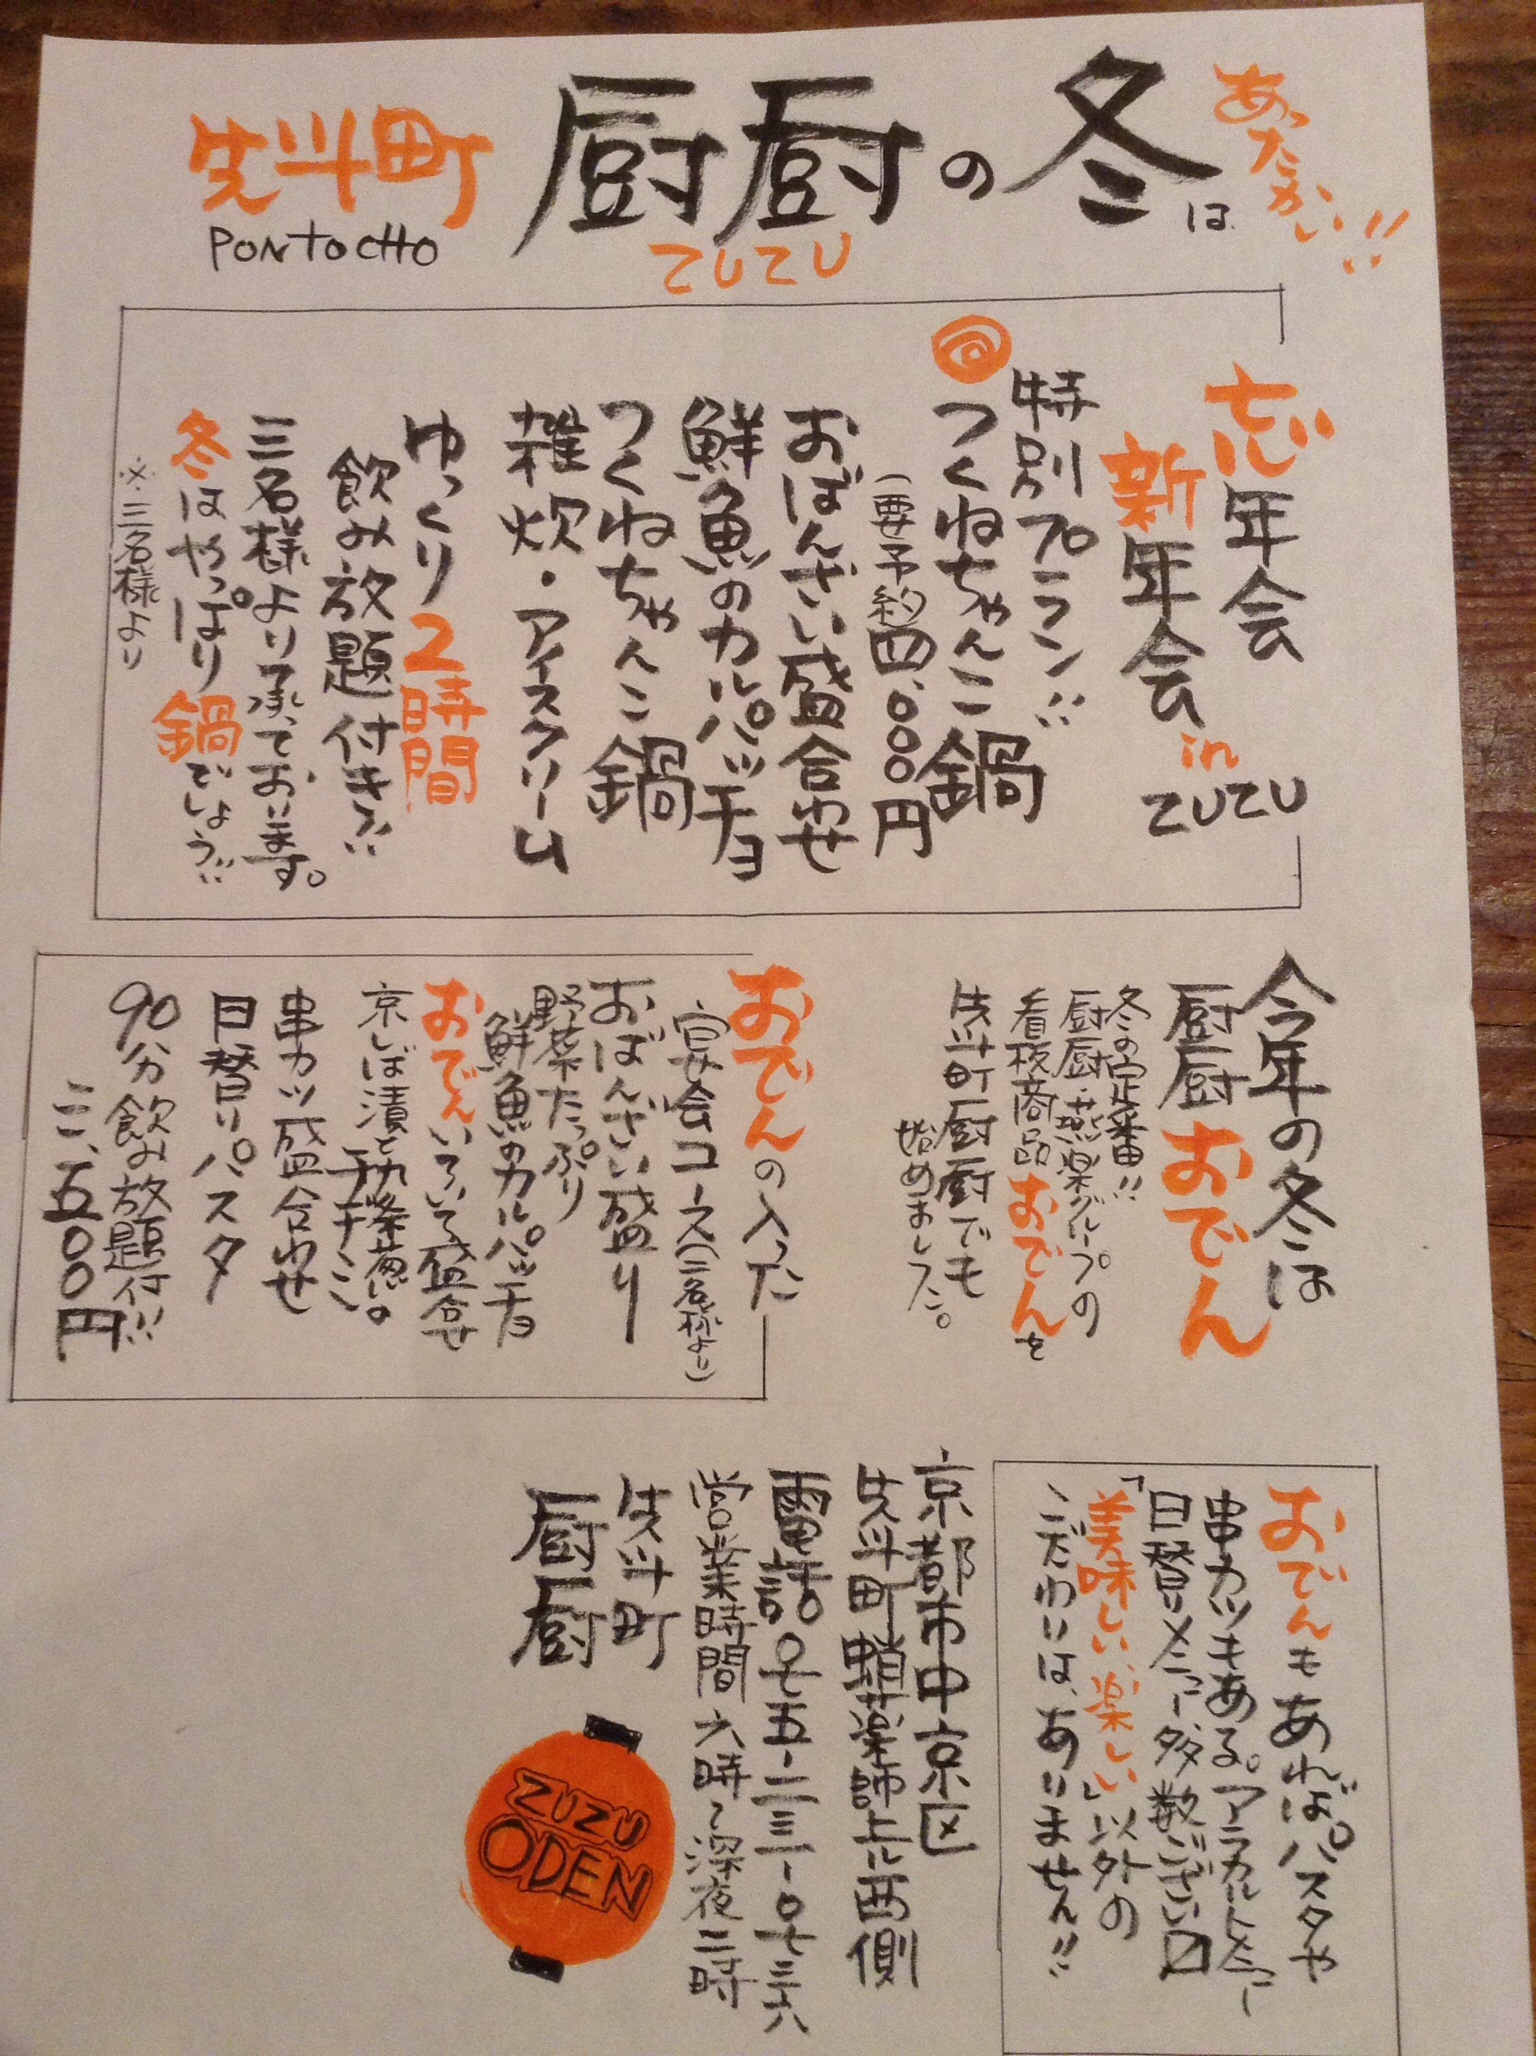 先斗町
PONTOCHO
厨厨の冬は
ZUZU
あったかい!!
忘年会
新年会
in
ZUZU
特別プラン!!
つくねちゃんこ鍋
(要予約四、000円
おばんざい盛合わせ
鮮魚のカルパッチョ
つくねちゃんこ鍋
雑炊・アイスクリーム
ゆっくり2時間
飲み放題付き!!
三名様より承っております。
冬はやっぱり鍋でしょう!!
※三名様より
今年の冬は
厨厨おでん
冬の定番!!
厨厨・燕楽グループの
看板商品おでんを
先斗町厨厨でも
始めました。
おでんの入った
宴会コース(二名様より)
おばんざい盛り
野菜たっぷり
鮮魚のカルパッチョ
おでんいろいろ盛合せ
京しば漬と九条葱の
チヂミ
串カツ盛合わせ
日替りパスタ
90分飲み放題付!!
三、五00円
おでんもあればパスタや
串カツもある。アラカルトメニュー
日替りメニュー多数ござい〼
「美味しい、楽しい」以外の
こだわりは、ありません!!
京都市中京区
先斗町蛸薬師上ル西側
電話〇七五-二三一-〇七三六
営業時間 六時~深夜二時
先斗町
厨厨
ZUZU
ODEN